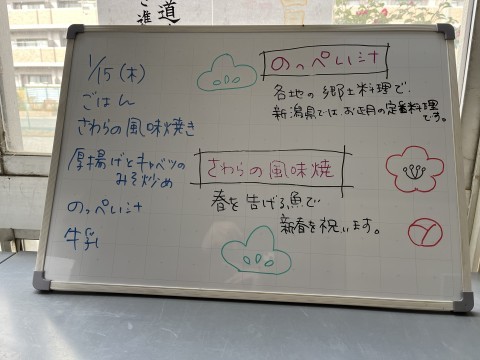 道
ご進
1/15(木)
ごはん
さわらの風味焼き
厚揚げとキャベツの
みそ炒め
のっぺい汁
牛乳
のっぺい汁
各地の郷土料理で、
新潟県では、お正月の定番料理
です。
さわらの風味焼
春を告げる魚で
新春を祝います。